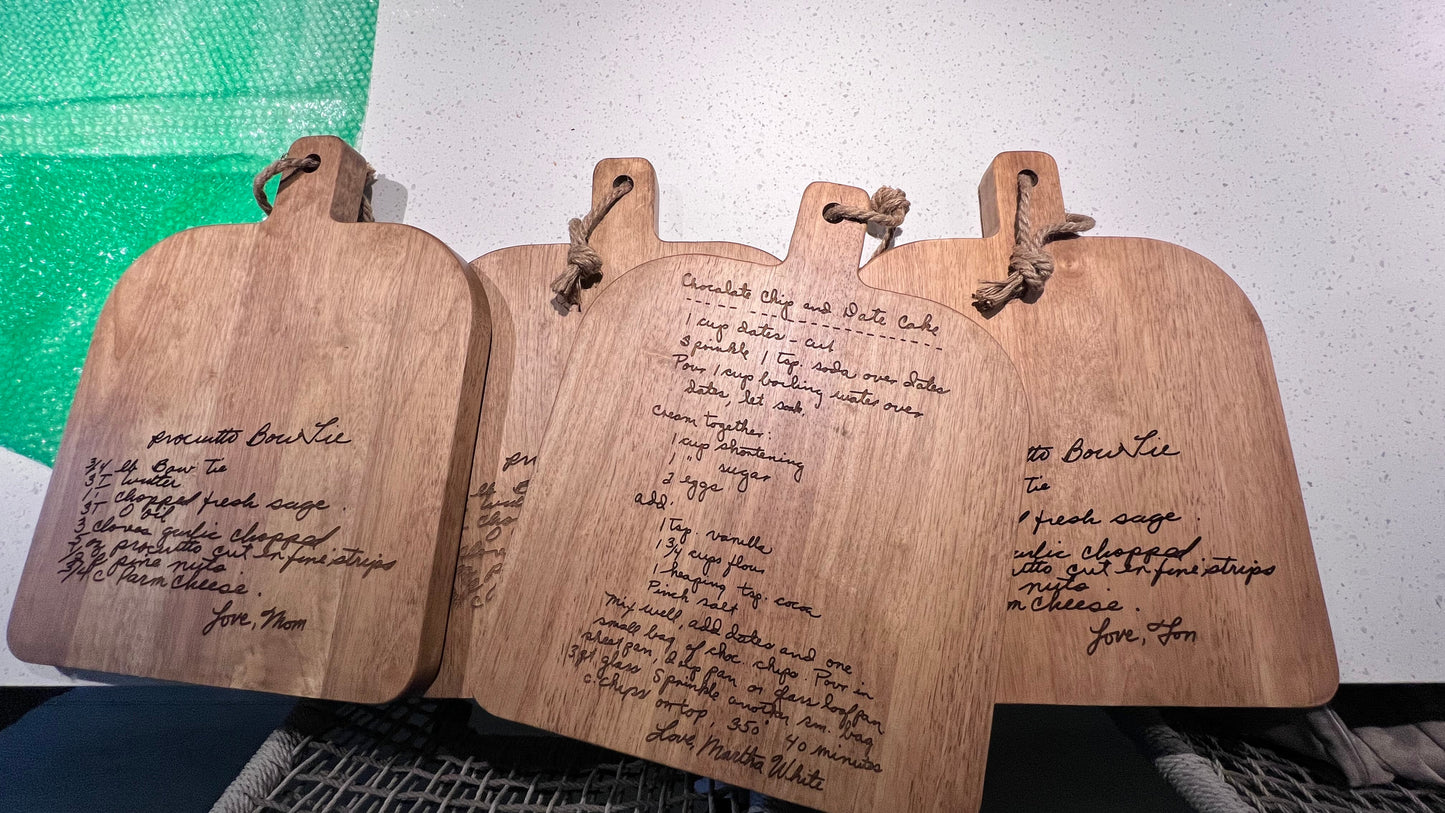 procuitto Bow Tie
3/4 lb Bow Tie
3T butter
1T chopped fresh sage.
3T O oil
3 cloves garlic chopped
5 oz procuitto cut in fine strips
pine nuts
3/4 c Parm cheese.
Love, Mom
Chocolate Chip and Date Cake
1 cup dates - cut
Sprinkle 1 tsp. soda over dates
Pour 1 cup boiling water over
dates, let soak.
Cream together:
1 cup shortening
1 " sugar
2 eggs
add:
1 tsp. vanilla
1 3/4 cups flour
1 heaping tsp. cocoa
Pinch salt
Mix well, add dates and one
small bag of choc. chips. Pour in
sheet pan, deep pan or glass loaf pan
3 qt glass Sprinkle another sm. bag
c. chips on top, 350° 40 minutes
Love, Martha White
Bow Tie
Tie
fresh sage.
chopped
cut in fine strips
nuts
cheese.
Love, Jon